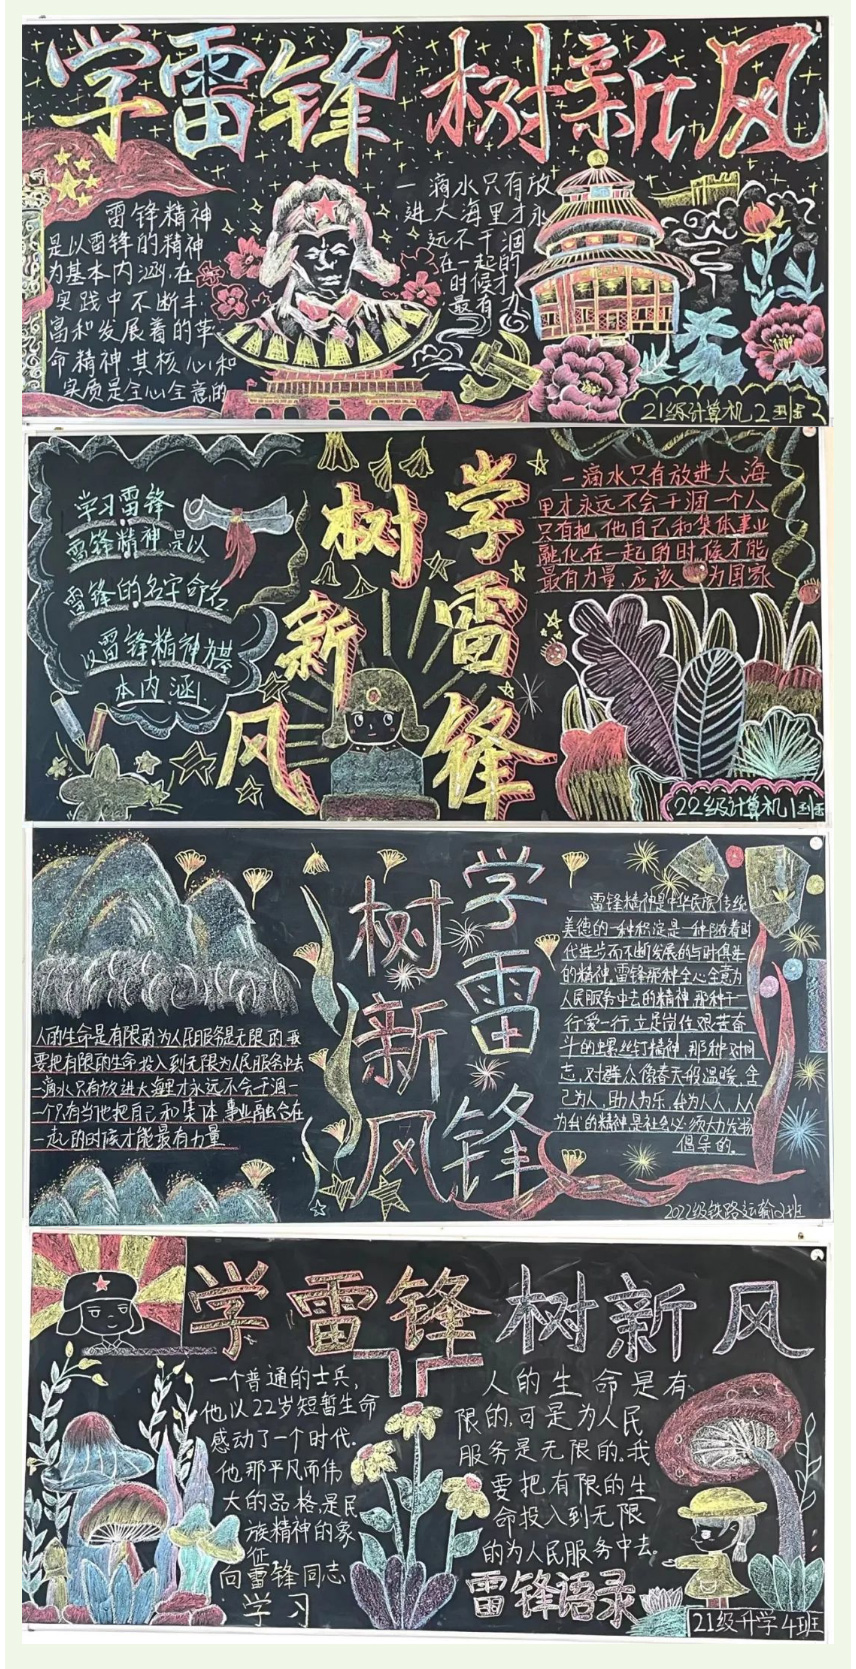 学雷锋 树新风
雷锋精神
是以雷锋的精神
为基本内涵,在
实践中不断丰
富和发展着的革
命精神,其核心和
实质是全心全意的
一滴水只有放
进大海里才永
远不干涸
在一起的
时候才
最有
21级计算机2班
学雷锋
树新风
学习雷锋
雷锋精神是以
雷锋的名字命名
以雷锋精神为基
本内涵.
一滴水只有放进大海
里才永远不会干涸一个人
只有把他自己和集体事业
融化在一起的时候才能
最有力量,应该 为国家
22级计算机1班
学雷锋
树新风
人的生命是有限的为人民服务是无限的,我
要把有限的生命投入到无限为人民服务中去
一滴水只有放进大海里才永远不会干涸一
个只有当他把自己和集体事业融合在
一起的时候才能最有力量
雷锋精神是中华民族传统
美德的一种积淀是一种随着时
代进步而不断发展的与时俱进
的精神,雷锋那种全心全意为
人民服务中去的精神,那种干一
行爱一行,立足岗位艰苦奋
斗的螺丝钉精神,那种对同
志,对群众像春天般温暖,舍
己为人,助人为乐,我为人人,人人
为我的精神是社会必须大力发扬
倡导的。
2022级铁路运输2班
学雷锋树新风
一个普通的士兵,
他以22岁短暂生命
感动了一个时代.
他那平凡而伟
大的品格,是民
族精神的象
征
向雷锋同志
学习
人的生命是有
限的,可是为人民
服务是无限的。我
要把有限的生
命投入到无限
的为人民服务中去。
雷锋语录
21级升学4班